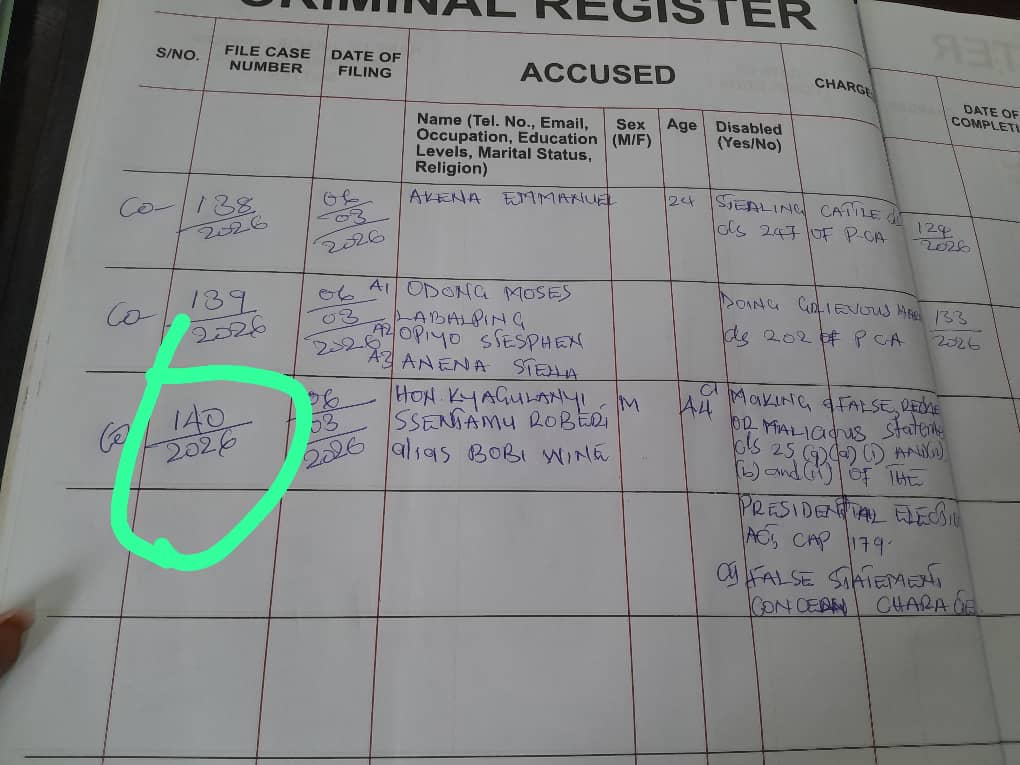 CRIMINAL REGISTER
S/NO.
FILE CASE
NUMBER
DATE OF
FILING
ACCUSED
CHARGE
DATE OF
COMPLETI
Name (Tel. No., Email,
Occupation, Education
Levels, Marital Status,
Religion)
Sex
(M/F)
Age
Disabled
(Yes/No)
Co- 138/2026
06/03/2026
AKENA EMMANUEL
24
STEALING CATTLE
c/s 247 OF PCA
124/2026
Co- 139/2026
06/03/2026
A1 ODONG MOSES
LABALPING
A2 OPIYO STESPHEN
A3 ANENA STELLA
DOING GRIEVOUS
c/s 202 of PCA
133/2026
Co 140/2026
06/03/2026
HON. KYAGULANYI
SSENTAMU ROBERT
alias BOBI WINE
M
44
MAKING FALSE,
OR MALICIOUS
c/s 25
(b) and (ii) OF THE
PRESIDENTIAL
ACT, CAP 179.
FALSE STATEMENT
CONCERN CHARACTE